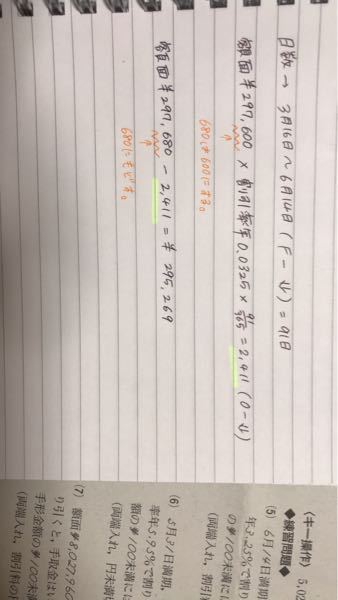 日数 → 3月16日〜6月14日(F-4)=91日
額面 ¥297,600 × 割引率年0.0325 × 91/365 = 2,411 (0-4)
680は600にする。
額面 ¥297,680 - 2,411 = ¥295,269
680にもどす。
〈キー操作〉 5,02
◆練習問題◆
(5) 6月14日満期
年3.25%で割り
の¥100未満に
(両端入れ,
(6) 5月31日満期,
率年5.55%で割り
額の¥100未満に
(両端入れ, 円未満
(7) 額面¥8,027,960
り引くと, 手取金は
手形金額の¥100未
(両端入れ, 割引料の